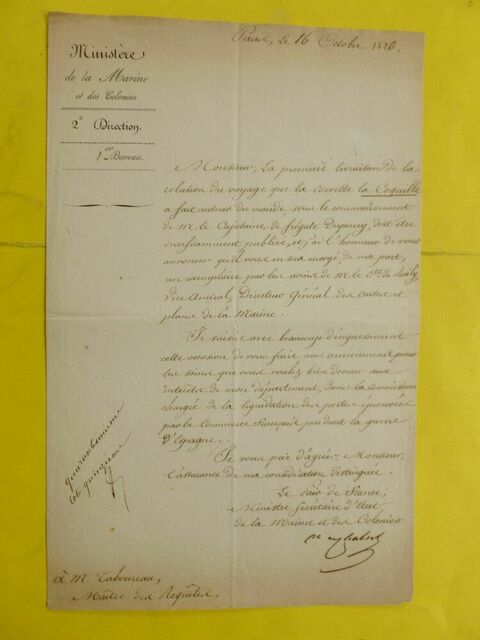 Ministère
de la Marine
et des Colonies.
2e Direction.
1er Bureau.
Paris, le 16 Octobre 1826.
Monsieur, La première livraison de la
relation du voyage que la corvette la Coquille
a fait autour du monde, sous le commandement
de M. le Capitaine de frégate Duperrey, doit être
incessamment publiée, et j'ai l'honneur de vous
annoncer qu'il vous en sera envoyé, de ma part,
un exemplaire par les soins de M. le Cte. de Rosily
Vice Amiral, Directeur Général des cartes et
plans de la Marine.
Je saisis avec beaucoup d'empressement
cette occasion de vous faire mes remerciemens pour
les soins que vous voulez bien donner aux
intérêts de mon département, dans la Commission
chargée de la liquidation des pertes éprouvées
par le Commerce français pendant la guerre
d'Espagne.
Je vous prie d'agréer, Monsieur,
l'assurance de ma considération distinguée.
Le Pair de France,
Ministre Secrétaire d'Etat
de la Marine et des Colonies
à M. Taboureau,
Maître des Requêtes.